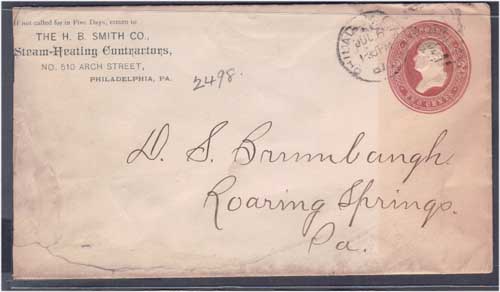 If not called for in Five Days, return to
THE H. B. SMITH CO.,
Steam-Heating Contractors,
NO. 510 ARCH STREET,
PHILADELPHIA, PA.
2498.
PHILAD
JUL
TWO CENTS
D. S. Brumbaugh
Roaring Springs.
Pa.